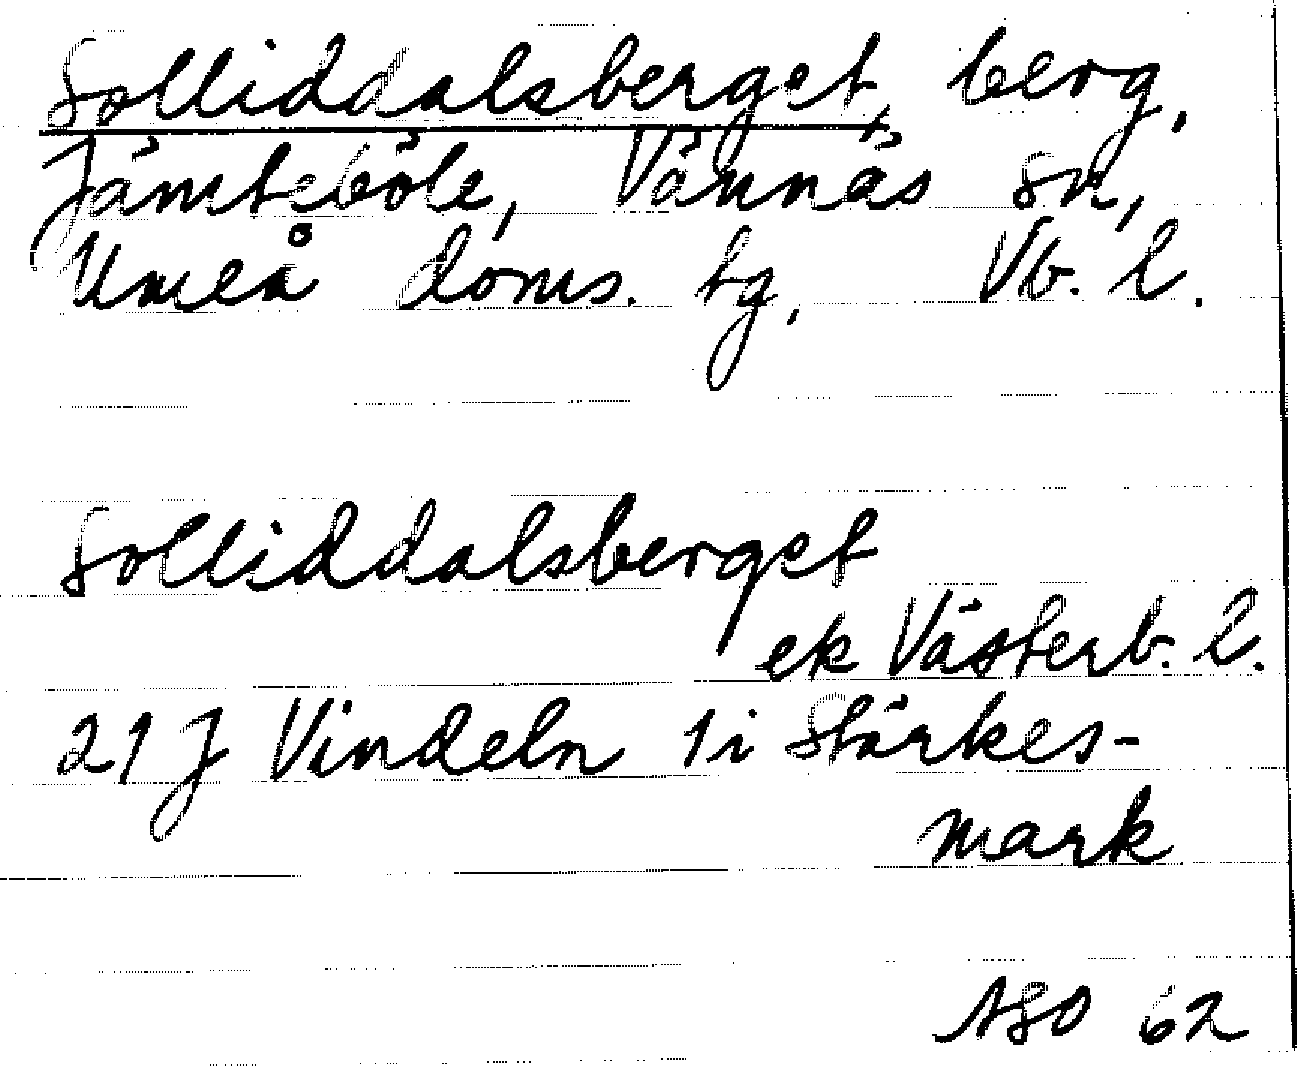 Solliddalsberget, berg,
Jämteböle, Vännäs sn,
Umeå doms. tg, Vb. l.
Solliddalsberget
ek Västerb. l.
21 J Vindeln 1i Stärkes-
mark
ASO 62